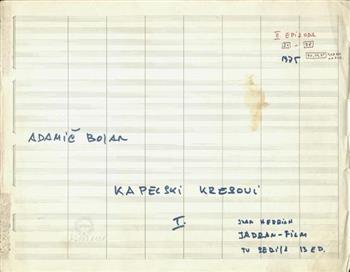 II EPIZODA
1975
ADAMIČ BOJAN
KAPELSKI KRESOVI
I.
IVAN HETRICH
JADRAN-FILM
TV SERIJA 13 ED.